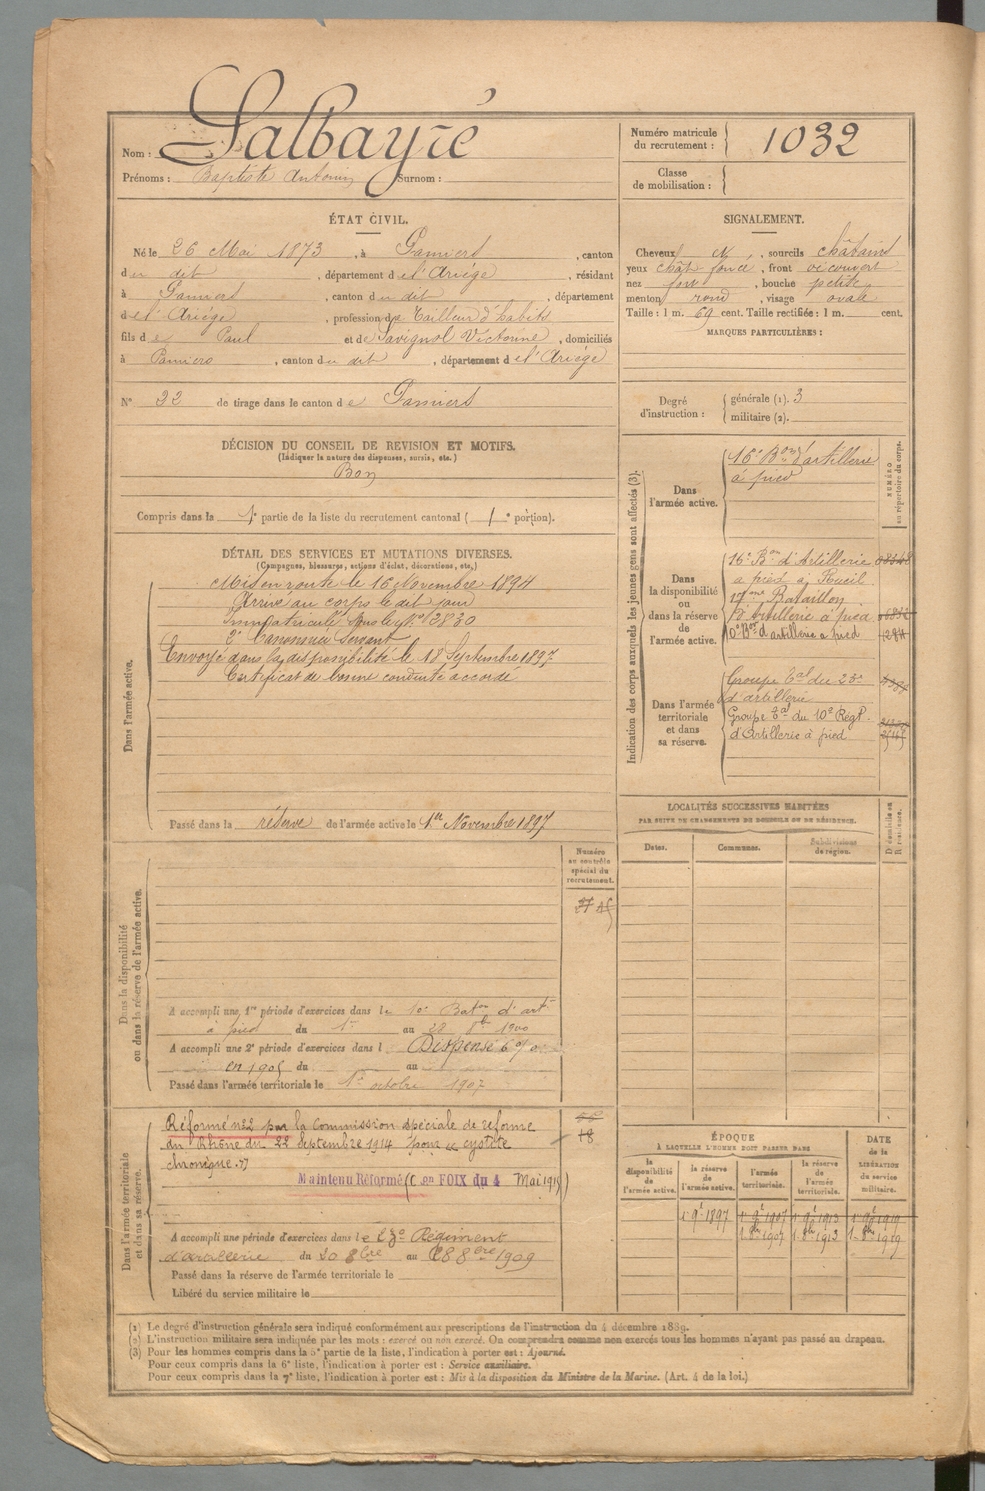 Nom : Salbayré
Prénoms : Baptiste Antonin Surnom :
Numéro matricule du recrutement : 1032
Classe de mobilisation :
ÉTAT CIVIL.
Né le 26 Mai 1873, à Pamiers, canton
du dit, département de l'Ariège, résidant
à Pamiers, canton du dit, département
de l'Ariège, profession de tailleur d'habits
fils de Paul et de Savignol Victorine, domiciliés
à Pamiers, canton du dit, département de l'Ariège
N° 22 de tirage dans le canton de Pamiers
SIGNALEMENT.
Cheveux et, sourcils châtains
yeux chât. foncé, front découvert
nez fort, bouche petite
menton rond, visage ovale
Taille : 1 m. 69 cent. Taille rectifiée : 1 m. cent.
MARQUES PARTICULIÈRES :
Degré d'instruction : générale (1). 3
militaire (2).
DÉCISION DU CONSEIL DE REVISION ET MOTIFS.
(Indiquer la nature des dispenses, sursis, etc.)
Bon
Compris dans la 1e partie de la liste du recrutement cantonal (1e portion).
DÉTAIL DES SERVICES ET MUTATIONS DIVERSES.
(Campagnes, blessures, actions d'éclat, décorations, etc.)
Dans l'armée active.
Mis en route le 16 Novembre 1894
Arrivé au corps le dit jour
Immatriculé sous le N° 2830
2e Canonnier Servant
Envoyé dans la disponibilité le 18 Septembre 1897
Certificat de bonne conduite accordé
Passé dans la réserve de l'armée active le 1er Novembre 1897
Indication des corps auxquels les jeunes gens sont affectés (3).
NUMÉRO au répertoire du corps.
Dans l'armée active.
16e Bon d'artillerie
à pied
Dans la disponibilité ou dans la réserve de l'armée active.
16e Bon d'Artillerie
à pied à Rueil
17ème Bataillon
d'Artillerie à pied
10e Bon d'artillerie à pied
Dans l'armée territoriale et dans sa réserve.
Groupe tal du 23e
d'artillerie
Groupe tal du 10e Régt
d'Artillerie à pied
LOCALITÉS SUCCESSIVES HABITÉES
PAR SUITE DE CHANGEMENTS DE DOMICILE OU DE RÉSIDENCE.
Dates. Communes. Subdivisions de région. D domicile ou R résidence.
Numéro au contrôle spécial du recrutement.
Dans la disponibilité ou dans la réserve de l'armée active.
A accompli une 1re période d'exercices dans le 10e Baton d'art
à pied du 1er au 28 8bre 1900
A accompli une 2e période d'exercices dans l Dispensé 6 %
en 1905 du au
Passé dans l'armée territoriale le 1er octobre 1907
Dans l'armée territoriale et dans sa réserve.
Réformé n°2 par la Commission spéciale de réforme
du Rhône du 22 Septembre 1914 pour "cystite
chronique."
Maintenu Réformé (C en FOIX du 4 Mai 1915)
18
A accompli une période d'exercices dans le 23e Régiment
d'artillerie du 20 8bre au 28 8bre 1909
Passé dans la réserve de l'armée territoriale le
Libéré du service militaire le
ÉPOQUE
À LAQUELLE L'HOMME DOIT PASSER DANS
la disponibilité de l'armée active. la réserve de l'armée active. l'armée territoriale. la réserve de l'armée territoriale.
DATE de la LIBÉRATION du service militaire.
1er 9bre 1897 1er 9bre 1907 1er 9bre 1913 1er 9bre 1919
1er 8bre 1907 1er 8bre 1913 1er 8bre 1919
(1) Le degré d'instruction générale sera indiqué conformément aux prescriptions de l'instruction du 4 décembre 1889.
(2) L'instruction militaire sera indiquée par les mots : exercé ou non exercé. On comprendra comme non exercés tous les hommes n'ayant pas passé au drapeau.
(3) Pour les hommes compris dans la 5e partie de la liste, l'indication à porter est : Ajourné.
Pour ceux compris dans la 6e liste, l'indication à porter est : Service auxiliaire.
Pour ceux compris dans la 7e liste, l'indication à porter est : Mis à la disposition du Ministre de la Marine. (Art. 4 de la loi.)